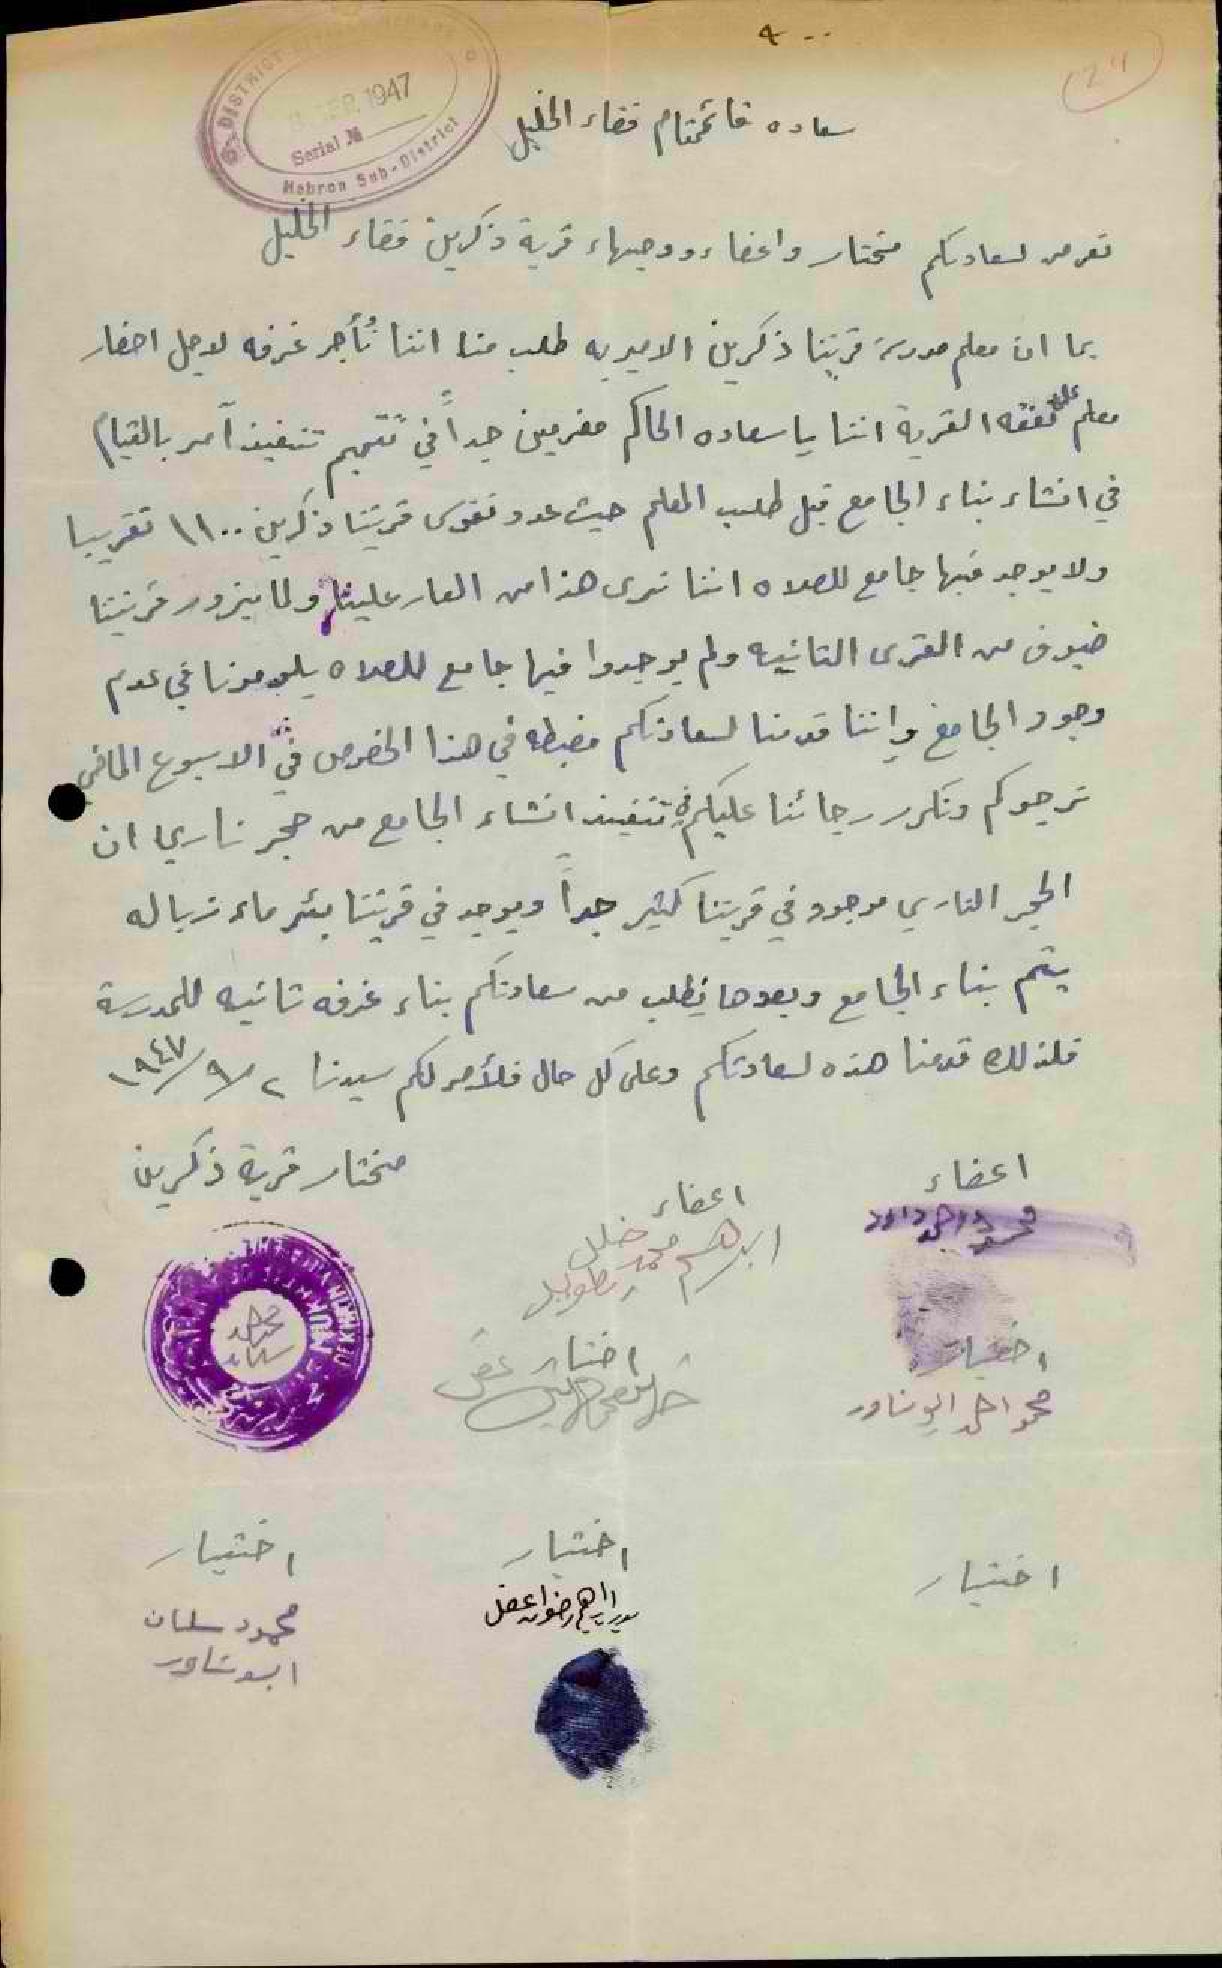 ٩٠٠
24
DISTRICT
SEP 1947
Serial №
Hebron Sub-District
سعاده قائمقام قضاء الخليل
نعرض لسعادتكم مختار واعضاء ووجهاء قرية ذكرين قضاء الخليل
بما ان معلم مدرسة قريتنا ذكرين الاميريه طلب منا اننا نُأجر غرفه لاجل احضار
معلم على نفقه القرية اننا يا سعاده الحاكم مغرمين جداً في تتميم تنفيذ آمر بالقيام
في انشاء بناء الجامع قبل طلب المعلم حيث عدد نفوس قريتنا ذكرين ١١٠٠ تقريبا
ولا يوجد فيها جامع للصلاه اننا نرى هذا من العار علينا ولما يزور قريتنا
ضيوف من القرى الثانيه ولم يوجدوا فيها جامع للصلاه يلومونا في عدم
وجود الجامع واننا قدمنا لسعادتكم مضبطه في هذا الخصوص في الاسبوع الماضي
نرجوكم ونكرر رجائنا عليكم في تنفيذ انشاء الجامع من حجر ناري ان
الحجر الناري موجود في قريتنا كثير جداً ويوجد في قريتنا بئر ماء نزباله
يتم بناء الجامع وبعدها نطلب من سعادتكم بناء غرفه ثانيه للمدرسة
فلذلك قدمنا هذه لسعادتكم وعلى كل حال فلأمر لكم سيدنا ٢/٩/١٩٤٧
مختار قرية ذكرين
اعضاء
اعضاء
ابراهيم محمد خليل
اختيار
محمد احمد ابو شاور
اختيار
اختيار
محمود سلمان
ابو شاور
اختيار
ابراهيم رضوان عقل
اختيار